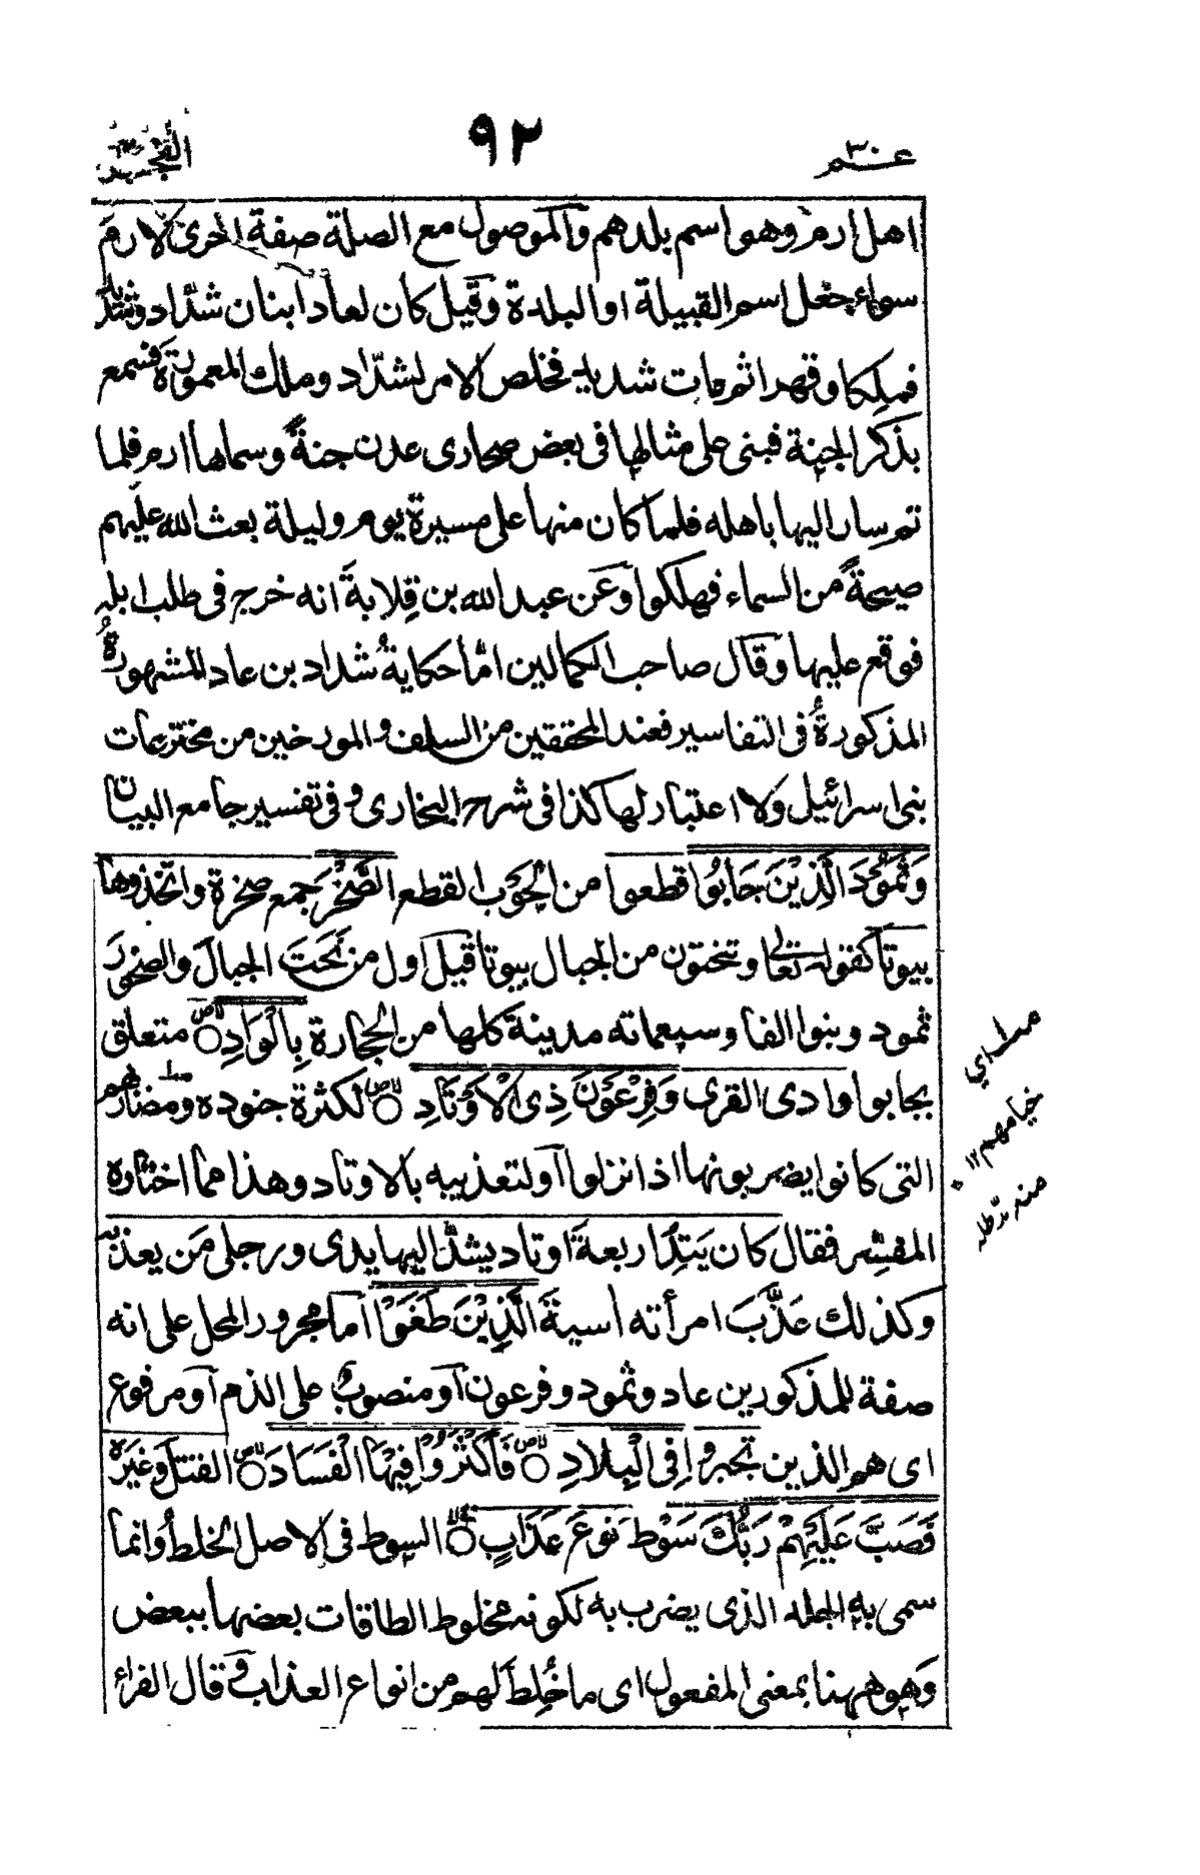 عـم ٣٠
٩٢
الفجر
اهل ارم وهو اسم بلدهم والموصول مع الصلة صفة اخرى لارم
سواء جعل اسم القبيلة او البلدة وقيل كان لعاد ابنان شدّاد وشديد
فملكا وقهرا ثم مات شديد فخلص الامر لشدّاد وملك المعمورة فسمع
بذكر الجنة فبنى على مثالها فى بعض صحارى عدن جنةً وسماها ارم فلما
تم سار اليها باهله فلما كان منها على مسيرة يوم وليلة بعث الله عليهم
صيحةً من السماء فهلكوا وعن عبد الله بن قِلابةَ انه خرج فى طلب ابله
فوقع عليها وقال صاحب الكمالين امّا حكايةُ شداد بن عاد المشهورةُ
المذكورةُ فى التفاسير فعند المحققين من السلف والمورخين من مخترعات
بنى اسرائيل ولا اعتبار لها كذا فى شرح البخارى وفى تفسير جامع البيان
وَثَمُوْدَ الَّذِيْنَ جَابُوا قطعوا من الجَوْب القطع الصَّخْرَ جمع صخرة واتخذوها
بيوتا كقوله تعالى وتنحتون من الجبال بيوتا قيل اول من نَحَتَ الجبال والصخورَ
ثمود وبنوا الفا وسبعمائه مدينة كلها من الحجارة بِالْوَادِ متعلق
بجابوا وادى القرى وَفِرْعَوْنَ ذِى الْاَوْتَادِ لكثرة جنوده ومضاربهم
التى كانوا يضربونها اذا نزلوا او لتعذيبه بالاوتاد وهذا مما اختاره
المفسّر فقال كان يَتِدُ اربعة اوتاد يشدّ اليها يدى ورجلى مَن يعذبه
وكذلك عَذَّبَ امرأته اسية الَّذِيْنَ طَغَوْا اما مجرور المحل على انه
صفة للمذكورين عاد وثمود وفرعون او منصوب على الذم او مرفوع
اى هم الذين تجبروا فِى الْبِلَادِ فَاَكْثَرُوْا فِيْهَا الْفَسَادَ القتل وغيره
فَصَبَّ عَلَيْهِمْ رَبُّكَ سَوْطَ نوعَ عَذَابٍ السوط فى الاصل الخلط وانما
سمى به الجلد الذى يضرب به لكونه مخلوط الطاقات بعضها ببعض
وهو ههنا بمعنى المفعول اى ما خُلِط لهم من انواع العذاب وقال الفراء
اي
خيامهم ١٢
منه مدّ ظله